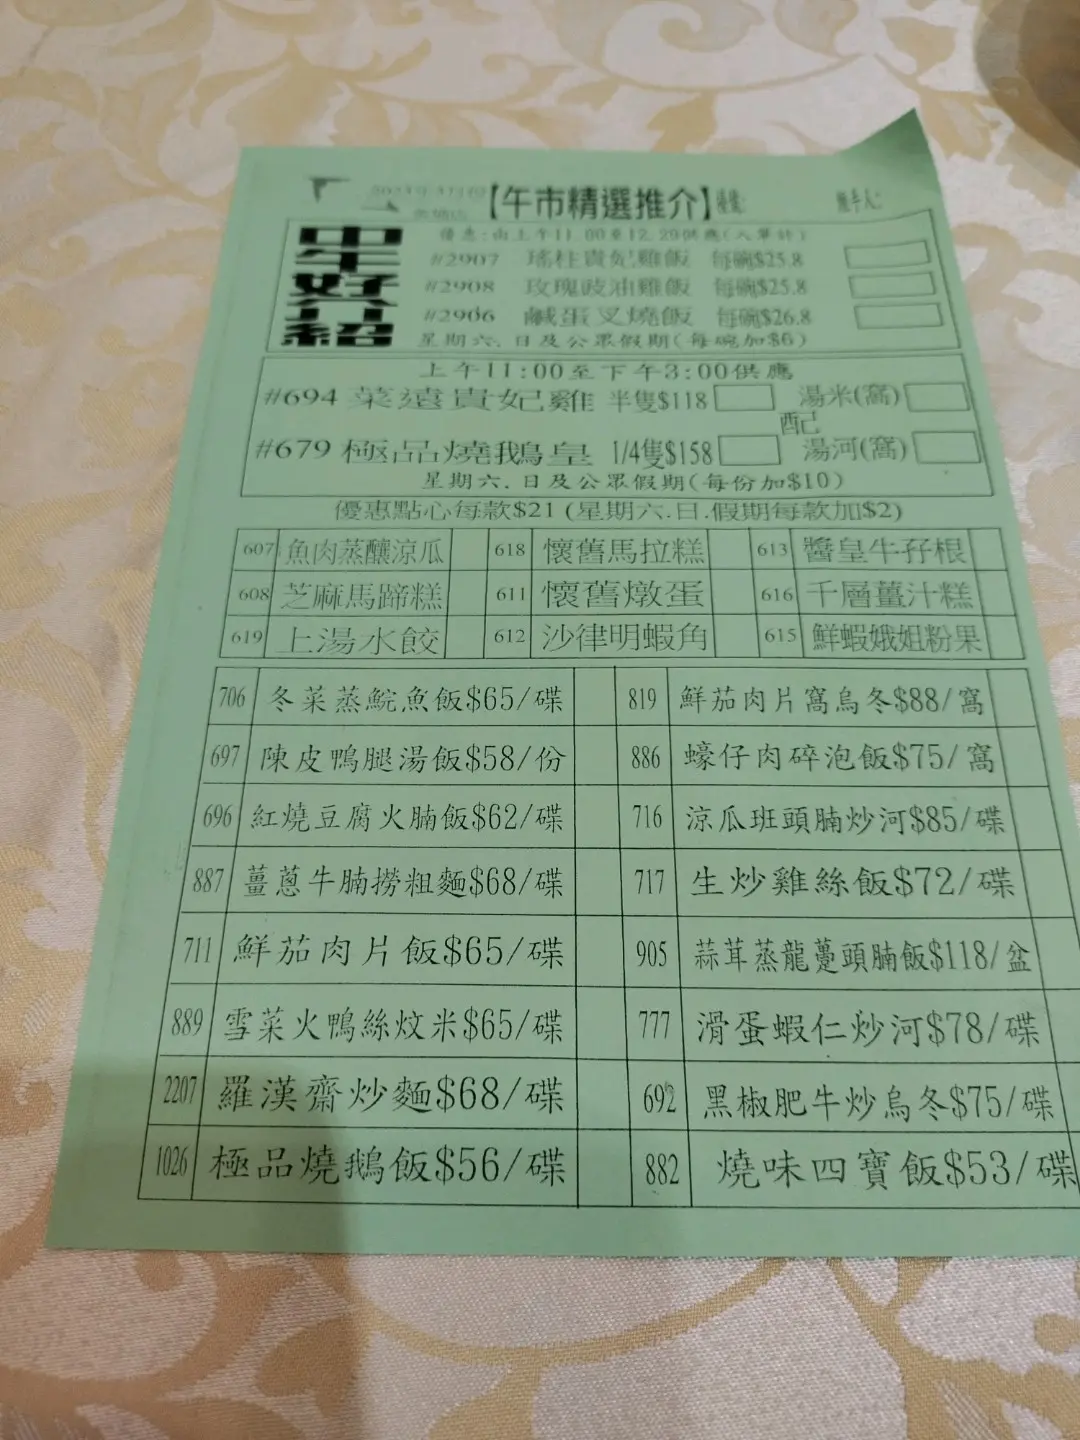 【午市精選推介】
經手人:
中午好介紹
優惠:由上午11.00至12.29供應(入單計)
#2907 瑤柱貴妃雞飯 每碗$25.8
#2908 玫瑰豉油雞飯 每碗$25.8
#2906 鹹蛋叉燒飯 每碗$26.8
星期六.日及公眾假期(每碗加$6)
上午11:00至下午3:00供應
#694 菜遠貴妃雞 半隻$118 湯米(窩)
配
#679 極品燒鵝皇 1/4隻$158 湯河(窩)
星期六.日及公眾假期(每份加$10)
優惠點心每款$21 (星期六.日.假期每款加$2)
607 魚肉蒸釀涼瓜 618 懷舊馬拉糕 613 醬皇牛孖根
608 芝麻馬蹄糕 611 懷舊燉蛋 616 千層薑汁糕
619 上湯水餃 612 沙律明蝦角 615 鮮蝦娥姐粉果
706 冬菜蒸鯇魚飯$65/碟 819 鮮茄肉片窩烏冬$88/窩
697 陳皮鴨腿湯飯$58/份 886 蠔仔肉碎泡飯$75/窩
696 紅燒豆腐火腩飯$62/碟 716 涼瓜班頭腩炒河$85/碟
887 薑蔥牛腩撈粗麵$68/碟 717 生炒雞絲飯$72/碟
711 鮮茄肉片飯$65/碟 905 蒜茸蒸龍躉頭腩飯$118/盆
889 雪菜火鴨絲炆米$65/碟 777 滑蛋蝦仁炒河$78/碟
2207 羅漢齋炒麵$68/碟 692 黑椒肥牛炒烏冬$75/碟
1026 極品燒鵝飯$56/碟 882 燒味四寶飯$53/碟